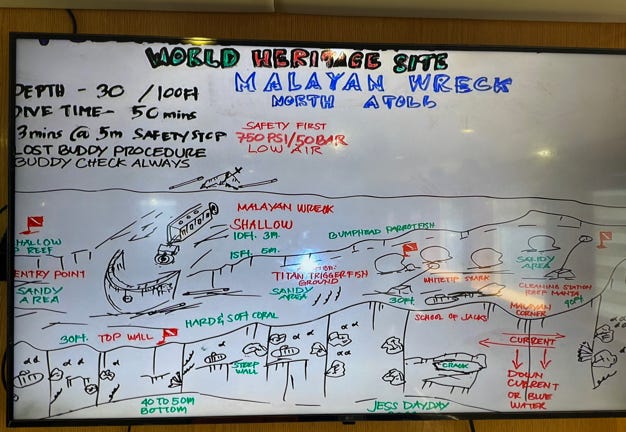 WORLD HERITAGE SITE
MALAYAN WRECK
NORTH ATOLL
DEPTH - 30 / 100FT
DIVE TIME - 50 mins
3mins @ 5m SAFETY STOP
LOST BUDDY PROCEDURE
BUDDY CHECK ALWAYS
SAFETY FIRST
750 PSI/50BAR
LOW AIR
MALAYAN WRECK
SHALLOW
10Ft. 3m.
15Ft. 5m.
BUMPHEAD PARROTFISH
SHALLOW
REEF
ENTRY POINT
SANDY
AREA
TITAN TRIGGERFISH
GROUND
SANDY
AREA
WHITETIP SHARK
SANDY
AREA
CLEANING STATION
REEF MANTA
30Ft.
40Ft
SCHOOL OF JACKS
MALAYAN
CORNER
HARD & SOFT CORAL
30Ft. TOP WALL
STEEP
WALL
CRACK
CURRENT
DOWN
CURRENT
OR BLUE
WATER
40 TO 50m
BOTTOM
JESS DAYDAY